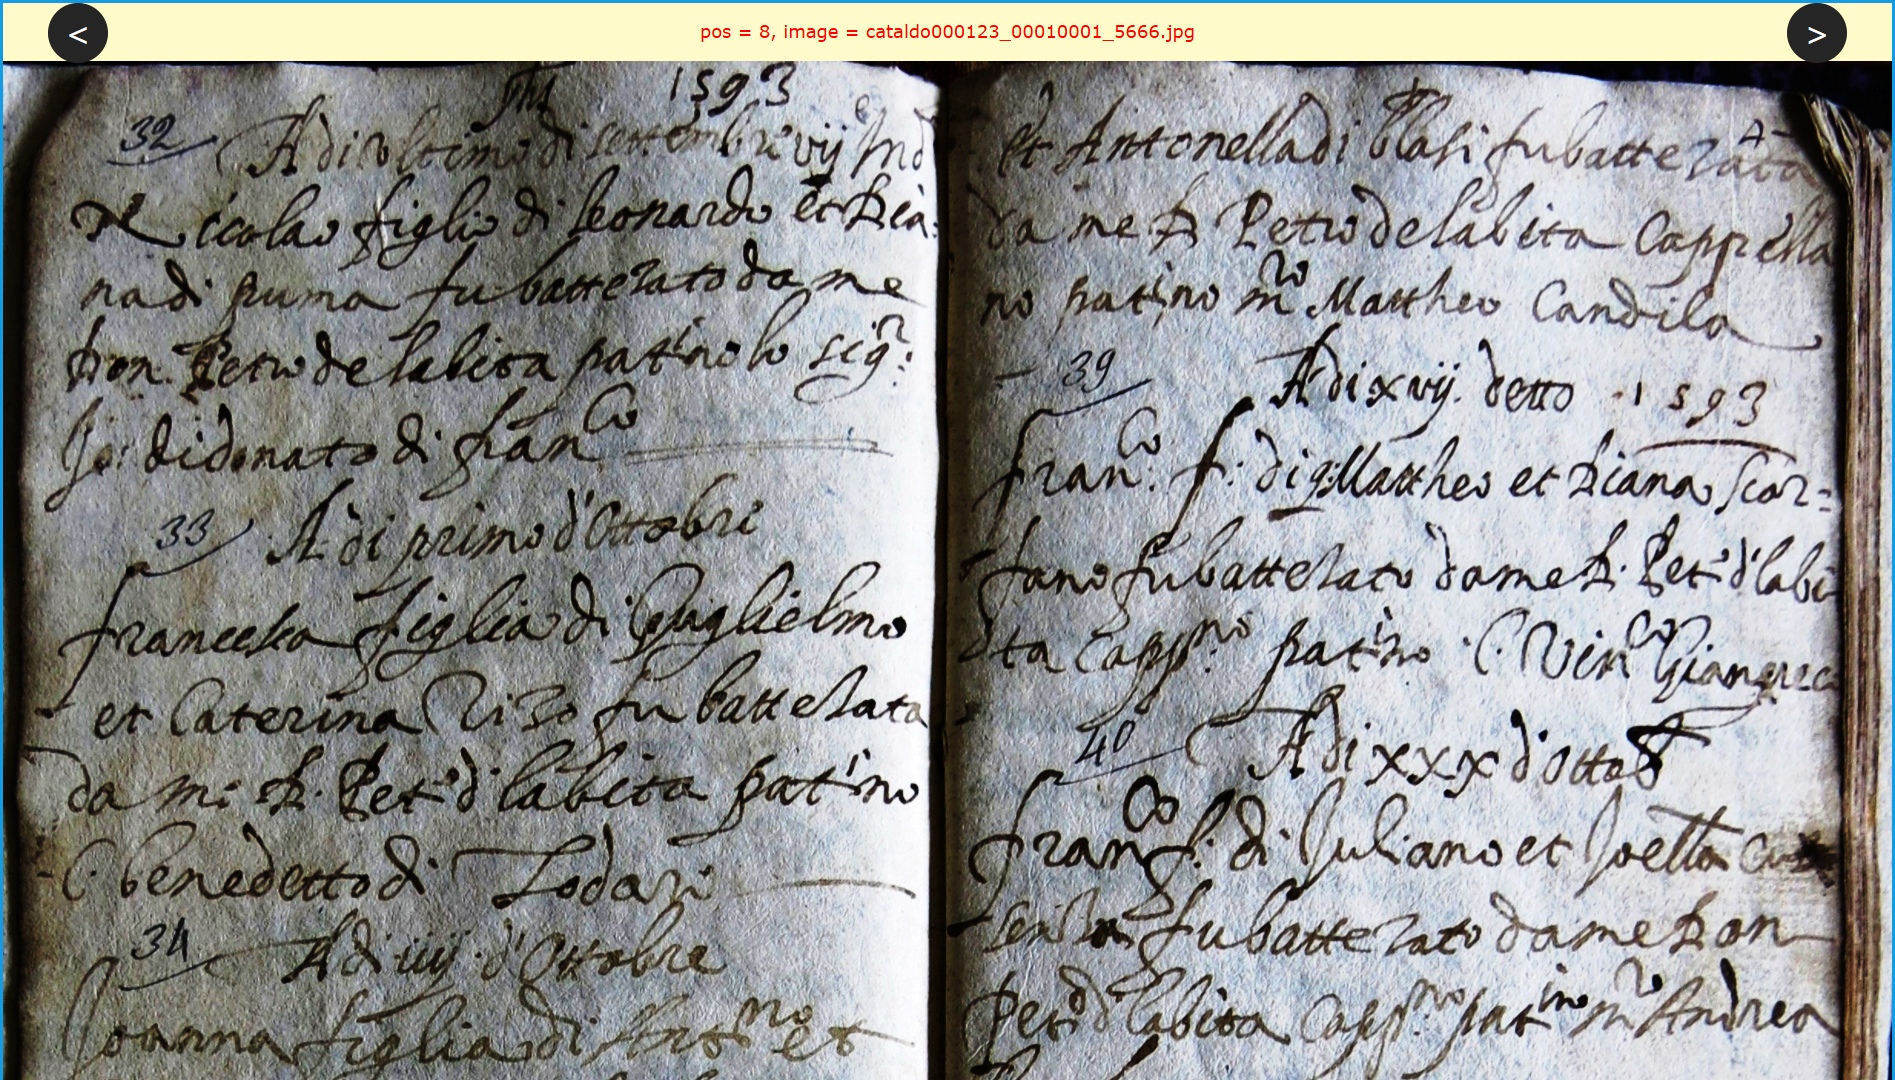 <
pos = 8, image = cataldo000123_00010001_5666.jpg
>
1593
32
A di ultimo di settembri vij Ind
Niccolao figlio di leonardo et Dia:
na di puma fu battezato da me
Don Petro de labita patino lo sig.r
Jo: di donato di fran.co
33
A di primo d'Ottobri
francesca figlia di Guglielmo
et Caterina Rizo fu battezata
da mi D. Pet.o d'labita patino
C. benedetto di Todaro
34
A di iiij d'Ottobre
Joanna figlia di Ant.no et
4
et Antonella di blasi fu battezata
da me D Petro de labita Cappella
no patino m.ro Mattheo Candila
39
A di xvij. detto 1593
fran.co f: di g: Mattheo et Diana Scor=
fano fu battezato da me D. Pet.o d'labi
ta Capp.no patino C. Vin.co Giangreco
40
A di xxx d'Ottob
fran.co f. di Juliano et Joella
fu battezato da me Don
Pet.o d'labita Capp.no patino m.ro Andrea